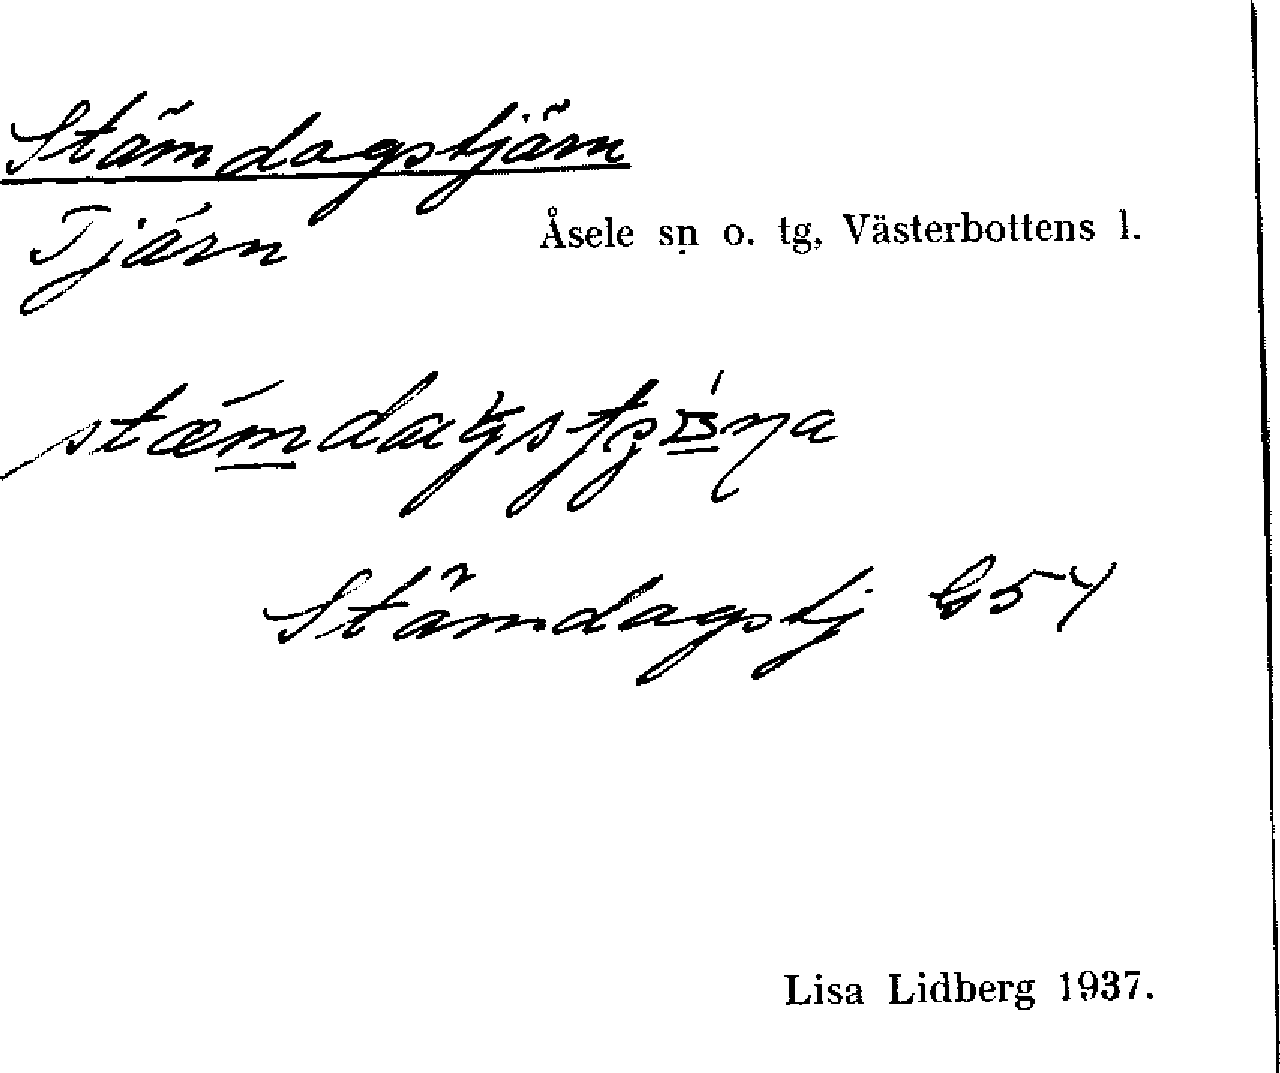 Stämdagstjärn
Tjärn
Åsele sn o. tg, Västerbottens l.
Stämdagstj G54
Lisa Lidberg 1937.